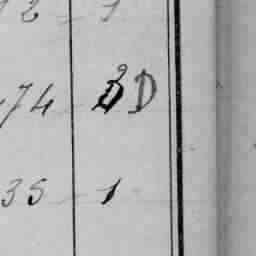 12 1
74 2 D
35 1